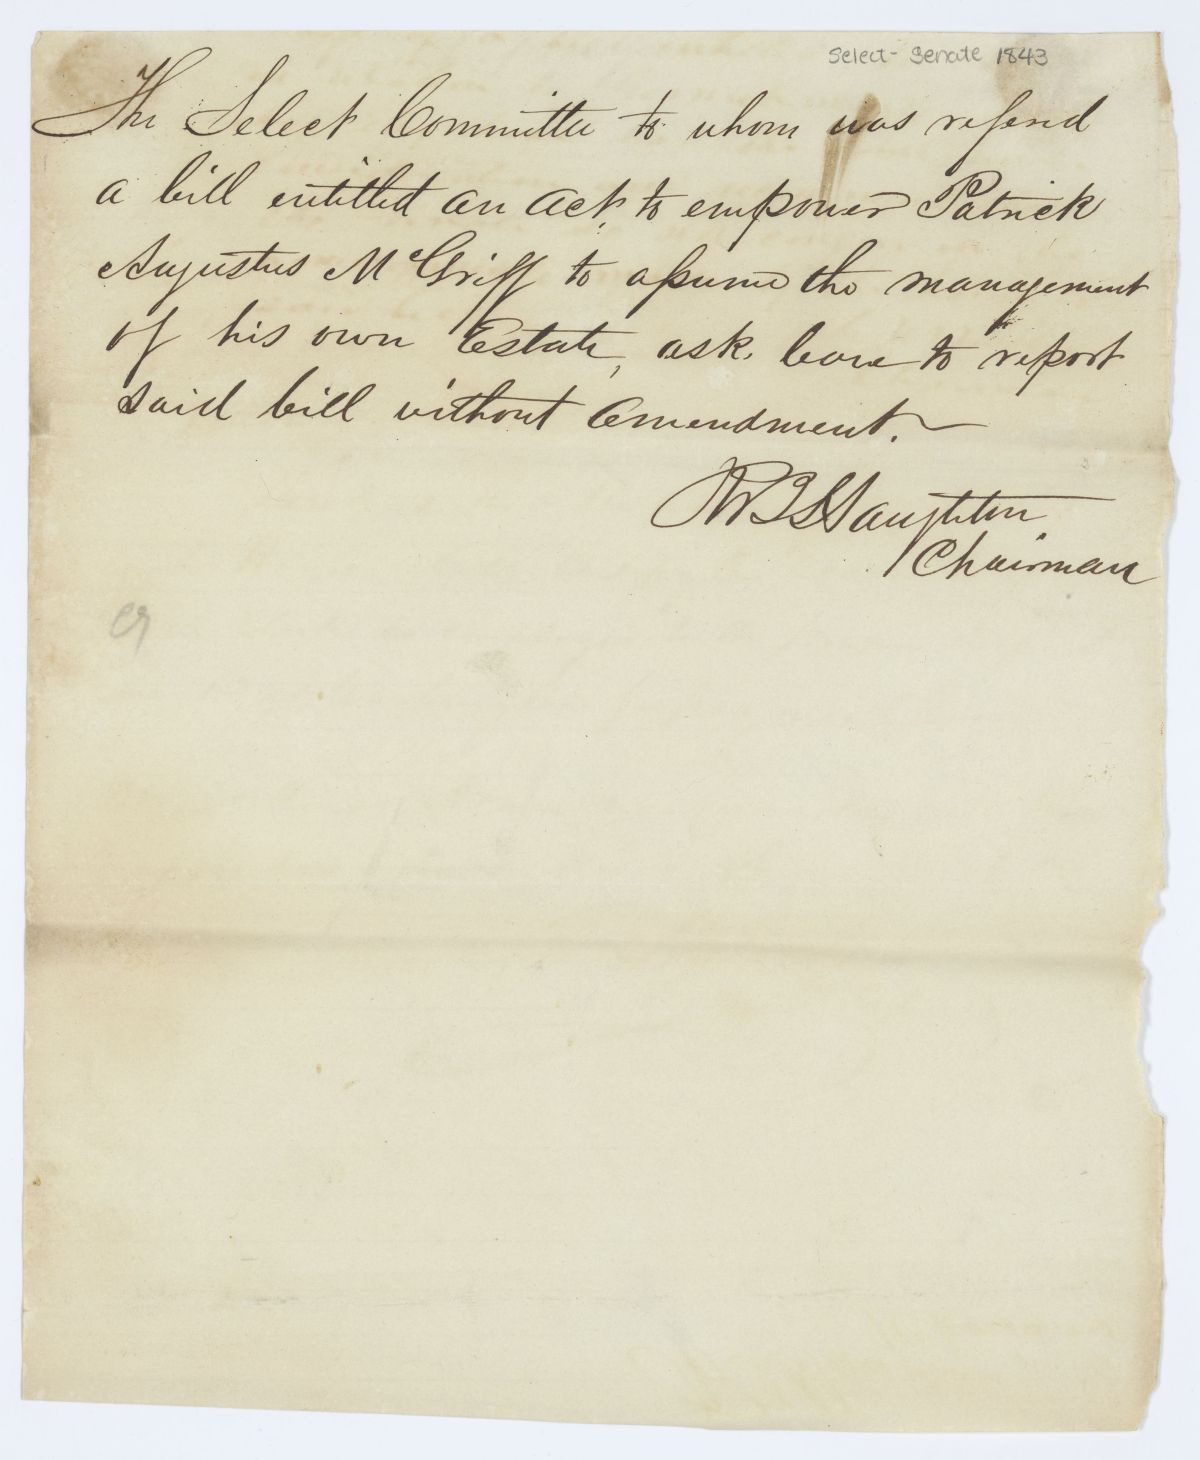 Select - Senate 1843
The Select Committee to whom was referred
a bill entitled an act, to empower Patrick
Augustus McGriff to assume the management
of his own Estate, ask leave to report
said bill without amendment.
Haughton
Chairman